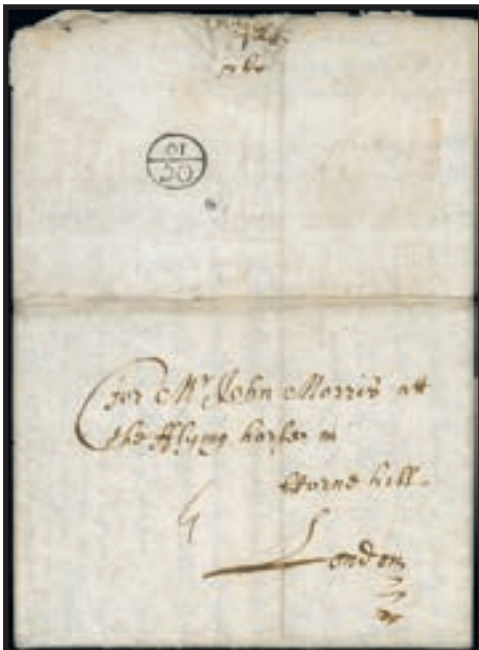 OC
10
ffor Mr John Morris att
the fflying horse in
Corne hill
London